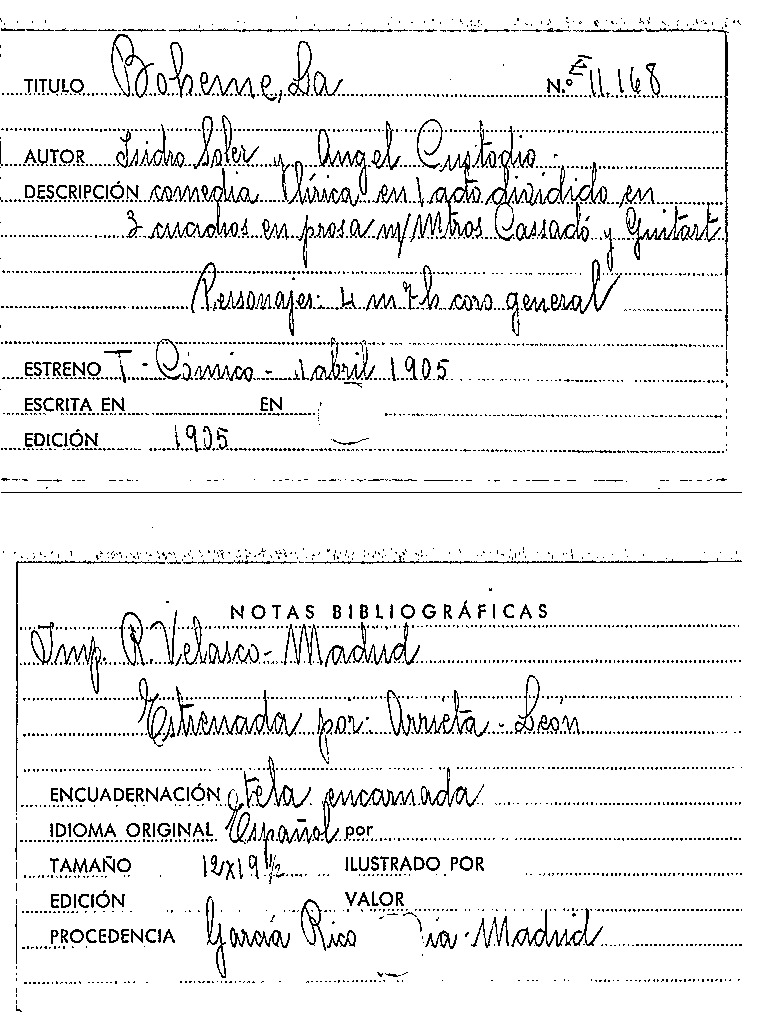 TITULO Boheme, La N.º 11.168
AUTOR Isidro Soler y Angel Custodio.
DESCRIPCIÓN comedia lírica en 1 acto dividido en
3 cuadros en prosa m/ Mtros Cassadó y Guitart
Personajes: 4 m 7 h coro general
ESTRENO T - Cómico - 1 abril 1905
ESCRITA EN EN
EDICIÓN 1905
NOTAS BIBLIOGRÁFICAS
Imp. R. Velasco - Madrid
Estrenada por: Arrieta - León
ENCUADERNACIÓN tela encarnada
IDIOMA ORIGINAL Español por
TAMAÑO 12x19 1/2 ILUSTRADO POR
EDICIÓN VALOR
PROCEDENCIA García Rico Madrid